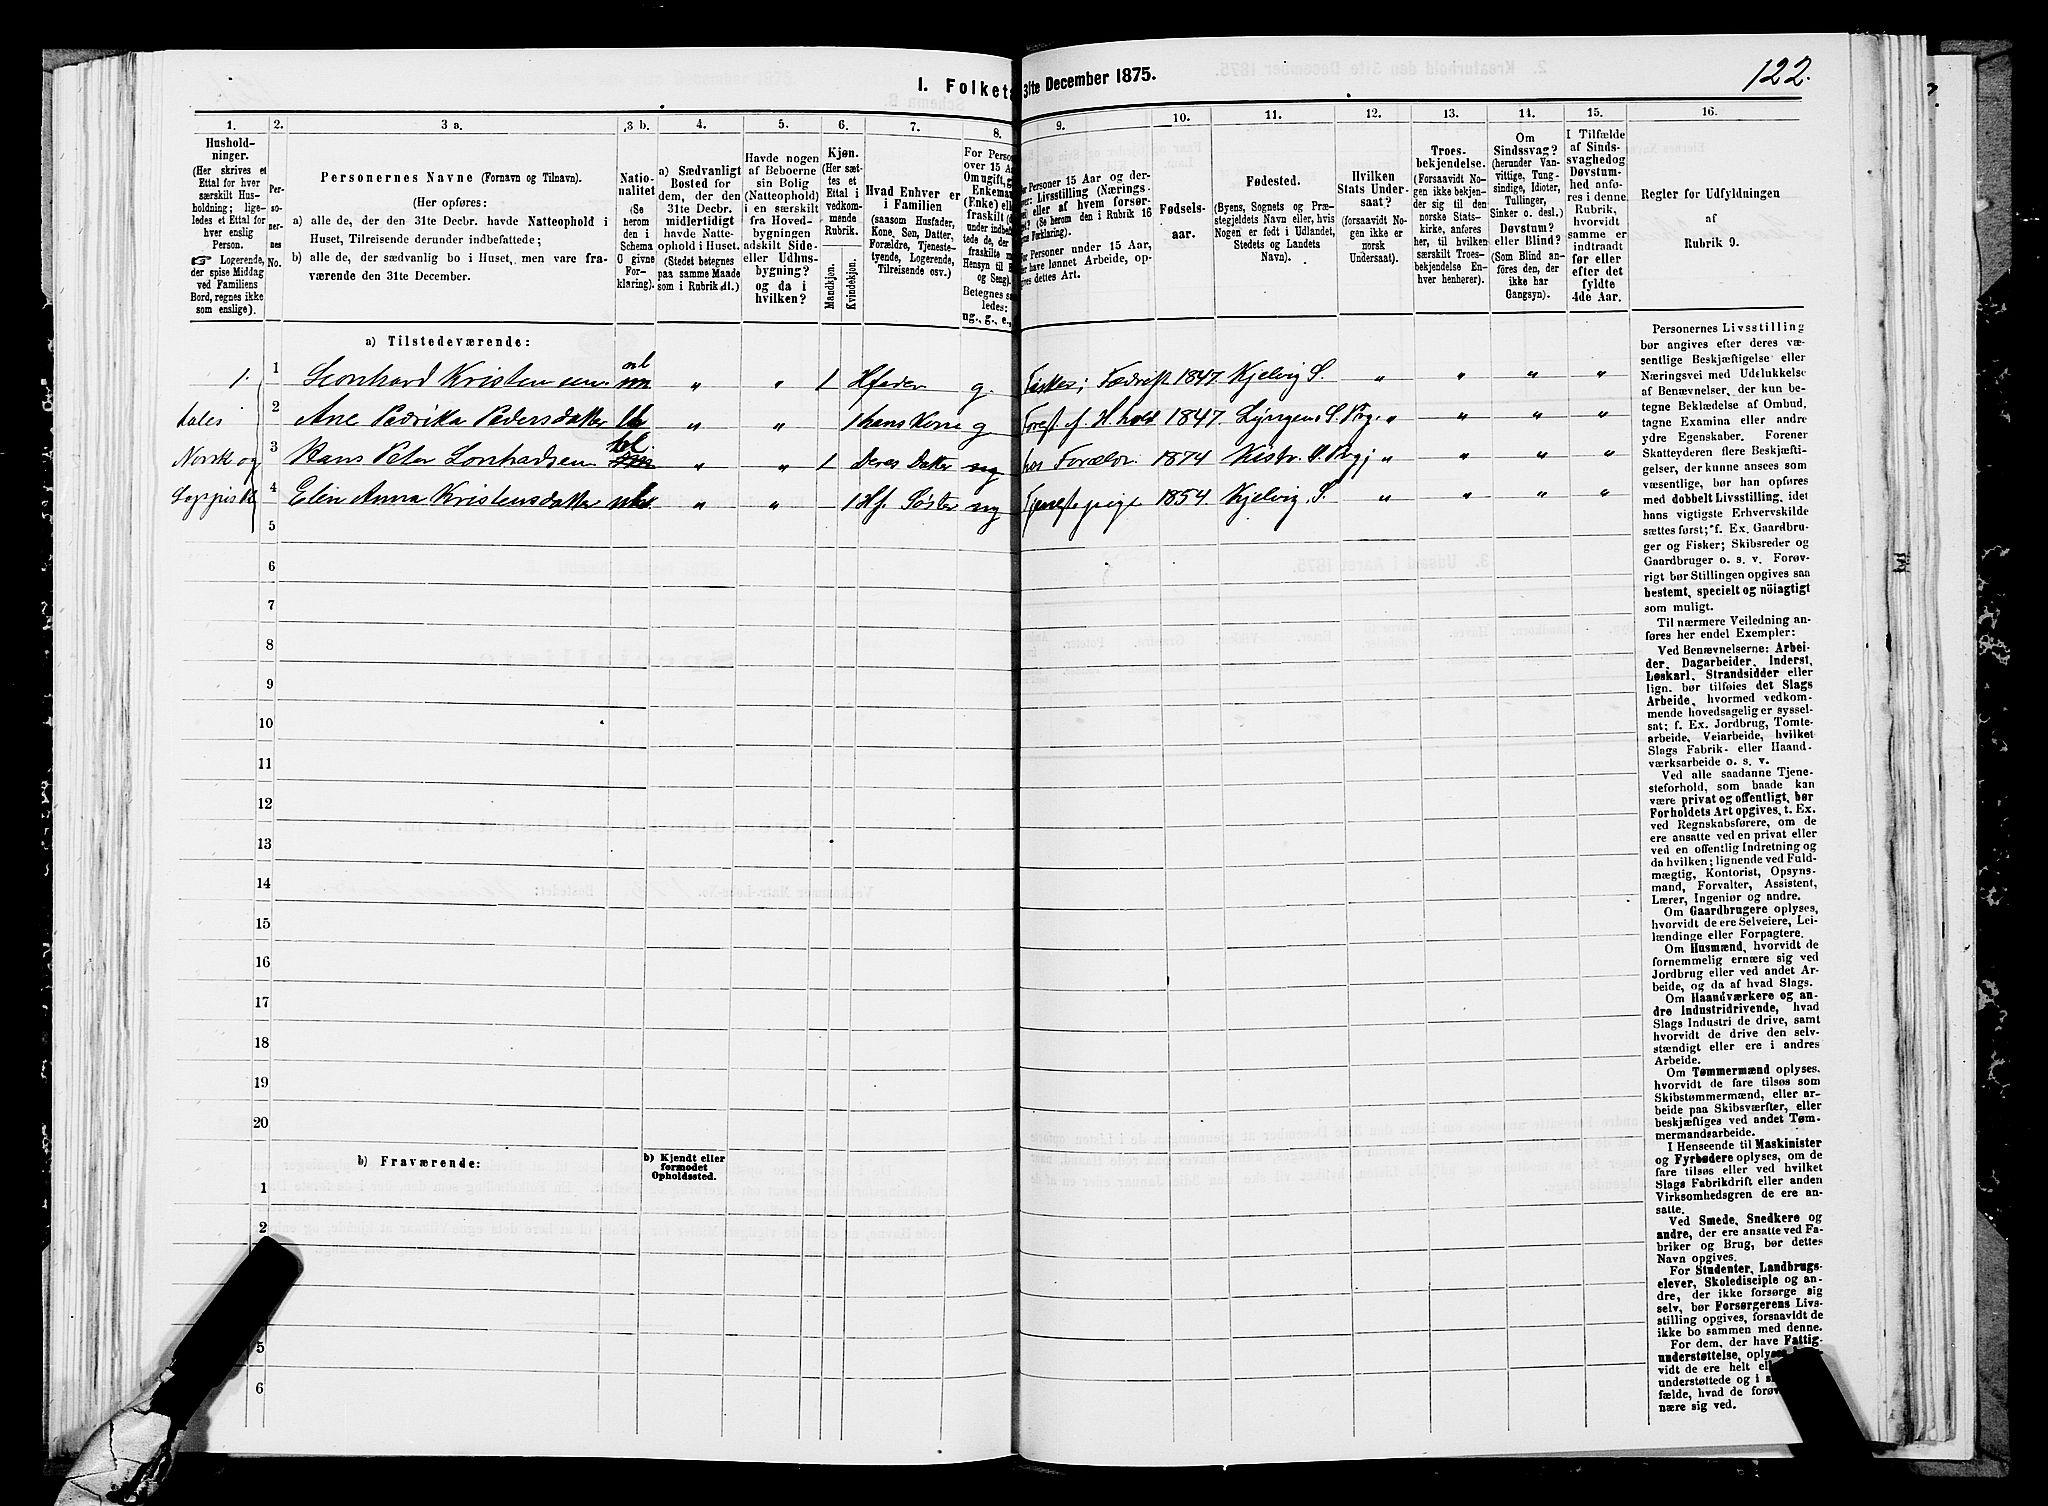 122.
I. Folketæ
31te December 1875.
1.
2.
3 a.
3 b.
4.
5.
6.
7.
8.
9.
10.
11.
12.
13.
14.
15.
16.
Hushold-
ninger.
(Her skrives et
Ettal for hver
særskilt Hus-
holdning; lige-
ledes et Ettal for
hver enslig
Person.
☞ Logerende,
der spise Middag
ved Familiens
Bord, regnes ikke
som enslige).
Per-
so-
ner-
nes
No.
Personernes Navne (Fornavn og Tilnavn).
(Her opføres:
a) alle de, der den 31te Decbr. havde Natteophold i
Huset, Tilreisende derunder indbefattede;
b) alle de, der sædvanlig bo i Huset, men vare fra-
værende den 31te December.
Natio-
nalitet
(Se
herom
den i
Schema
C givne
For-
klaring).
a) Sædvanligt
Bosted for
dem, der den
31te Decbr.
midlertidigt
havde Natte-
ophold i Huset.
(Stedet betegnes
paa samme Maade
som i Rubrik 11.)
Havde nogen
af Beboerne
sin Bolig
(Natteophold)
i en særskilt
fra Hoved-
bygningen
adskilt Side-
eller Udhus-
bygning?
og da i
hvilken?
Kjøn.
(Her sæt-
tes et
Ettal i
vedkom-
mende
Rubrik.
Mandkjøn.
Kvindekjøn.
Hvad Enhver er
i Familien
(saasom Husfader,
Kone, Søn, Datter,
Forældre, Tjeneste-
tyende, Logerende,
Tilreisende osv.)
For Person
over 15 Aa
Om ugift, g
Enkeman
(Enke) ell
fraskilt (d
under indbe
tede de, de
fraskilte m
Hensyn til B
og Seng).
Betegnes s
ledes:
ug., g., e.,
For Personer 15 Aar og der-
over: Livsstilling (Nærings-
vei) eller af hvem forsør-
get? (Se herom den i Rubrik 16
givne Forklaring).
For Personer under 15 Aar,
der have lønnet Arbeide, op-
gives dettes Art.
Fødsels-
aar.
Fødested.
(Byens, Sognets og Præ-
stegjeldets Navn eller, hvis
Nogen er født i Udlandet,
Stedets og Landets
Navn).
Hvilken
Stats Under-
saat?
(forsaavidt No-
gen ikke er
norsk
Undersaat).
Troes-
bekjendelse.
(Forsaavidt No-
gen ikke bekjen-
der sig til den
norske Stats-
kirke, anføres
her, til hvilken
særskilt Troes-
bekjendelse En-
hver henhører).
Om
Sindssvag?
(herunder Van-
vittige, Tung-
sindige, Idioter,
Tullinger,
Sinker o. desl.)
Døvstum?
eller Blind?
(Som Blind an-
føres den, der
ikke har
Gangsyn).
I Tilfælde
af Sinds-
svaghedog
Døvstum-
hed anfø-
res i denne
Rubrik,
hvorvidt
samme er
indtraadt
før eller
efter det
fyldte
4de Aar.
Regler for Udfyldningen
af
Rubrik 9.
a) Tilstedeværende:
1. 1 Leonhard Kristensen nl " " 1 Hfader g. Fisker; Fædrift 1847. Kjelvig S. " " " "
tales 2 Ane Pedrika Pedersdatter lb " " 1 hans Kone g. Forest. f. H.hold 1847. Lyngens S. Prg. " " " "
Norsk og 3 Hans Peter Leonhadsen bl " " 1 Deres Datter ug hos Foreldr. 1874 Kistr. S. Prgj " " " "
Lappisk 4 Elen Anna Kristensdatter " " 1 Hf. Søster ug Tjenestepige 1854. Kjelvig S. " " " "
5
6
7
8
9
10
11
12
13
14
15
16
17
18
19
20
b) Fraværende:
b) Kjendt eller
formodet
Opholdssted.
1
2
5
6
Personernes Livsstilling
bør angives efter deres væ-
sentlige Beskjæftigelse eller
Næringsvei med Udelukkelse
af Benævnelser, der kun be-
tegne Beklædelse af Ombud,
tagne Examina eller andre
ydre Egenskaber. Forener
Skatteyderen flere Beskjæfti-
gelser, der kunne ansees som
væsentlige, bør han opføres
med dobbelt Livsstilling, idet
hans vigtigste Erhvervskilde
sættes først; f. Ex. Gaardbru-
ger og Fisker; Skibsreder og
Gaardbruger o. s. v. Forøv-
rigt bør Stillingen opgives saa
bestemt, specielt og nöiagtigt
som muligt.
Til nærmere Veiledning an-
føres her endel Exempler:
Ved Benævnelserne: Arbei-
der, Dagarbeider, Inderst,
Løskarl, Strandsidder eller
lign. bør tilføies det Slags
Arbeide, hvormed vedkom-
mende hovedsagelig er syssel-
sat; f. Ex. Jordbrug, Tomte-
arbeide, Veiarbeide, hvilket
Slags Fabrik- eller Haand-
værksarbeide o. s. v.
Ved alle saadanne Tjene-
steforhold, som baade kan
være privat og offentligt, bør
Forholdets Art opgives, t. Ex.
ved Regnskabsførere, om de
ere ansatte ved en privat eller
ved en offentlig Indretning og
da hvilken; lignende ved Fuld-
mægtig, Kontorist, Opsyns-
mand, Forvalter, Assistent,
Lærer, Ingeniør og andre.
Om Gaardbrugere oplyses,
hvorvidt de ere Selveiere, Lei-
lændinge eller Forpagtere.
Om Husmænd, hvorvidt de
fornemmelig ernære sig ved
Jordbrug eller ved andet Ar-
beide, og da af hvad Slags.
Om Haandværkere og an-
dre Industridrivende, hvad
Slags Industri de drive, samt
hvorvidt de drive den selv-
stændigt eller ere i andres
Arbeide.
Om Tømmermænd oplyses,
hvorvidt de fare tilsøs som
Skibstømmermænd, eller ar-
beide paa Skibsværfter, eller
beskjæftiges ved andet Tøm-
mermandsarbeide.
I Henseende til Maskinister
og Fyrbødere oplyses, om de
fare tilsøs eller ved hvilket
Slags Fabrikdrift eller anden
Virksomhedsgren de ere an-
satte.
Ved Smede, Snedkere og
andre, der ere ansatte ved Fa-
briker og Brug, bør dettes
Navn opgives.
For Studenter, Landbrugs-
elever, Skoledisciple og an-
dre, der ikke forsørge sig
selv, bør Forsørgerens Livs-
stilling opgives, forsaavidt de
ikke bo sammen med denne.
For dem, der have Fattig-
understøttelse, oplyses
vidt de ere helt el
understøttede og i
fælde, hvad de forøv
nære sig ved.